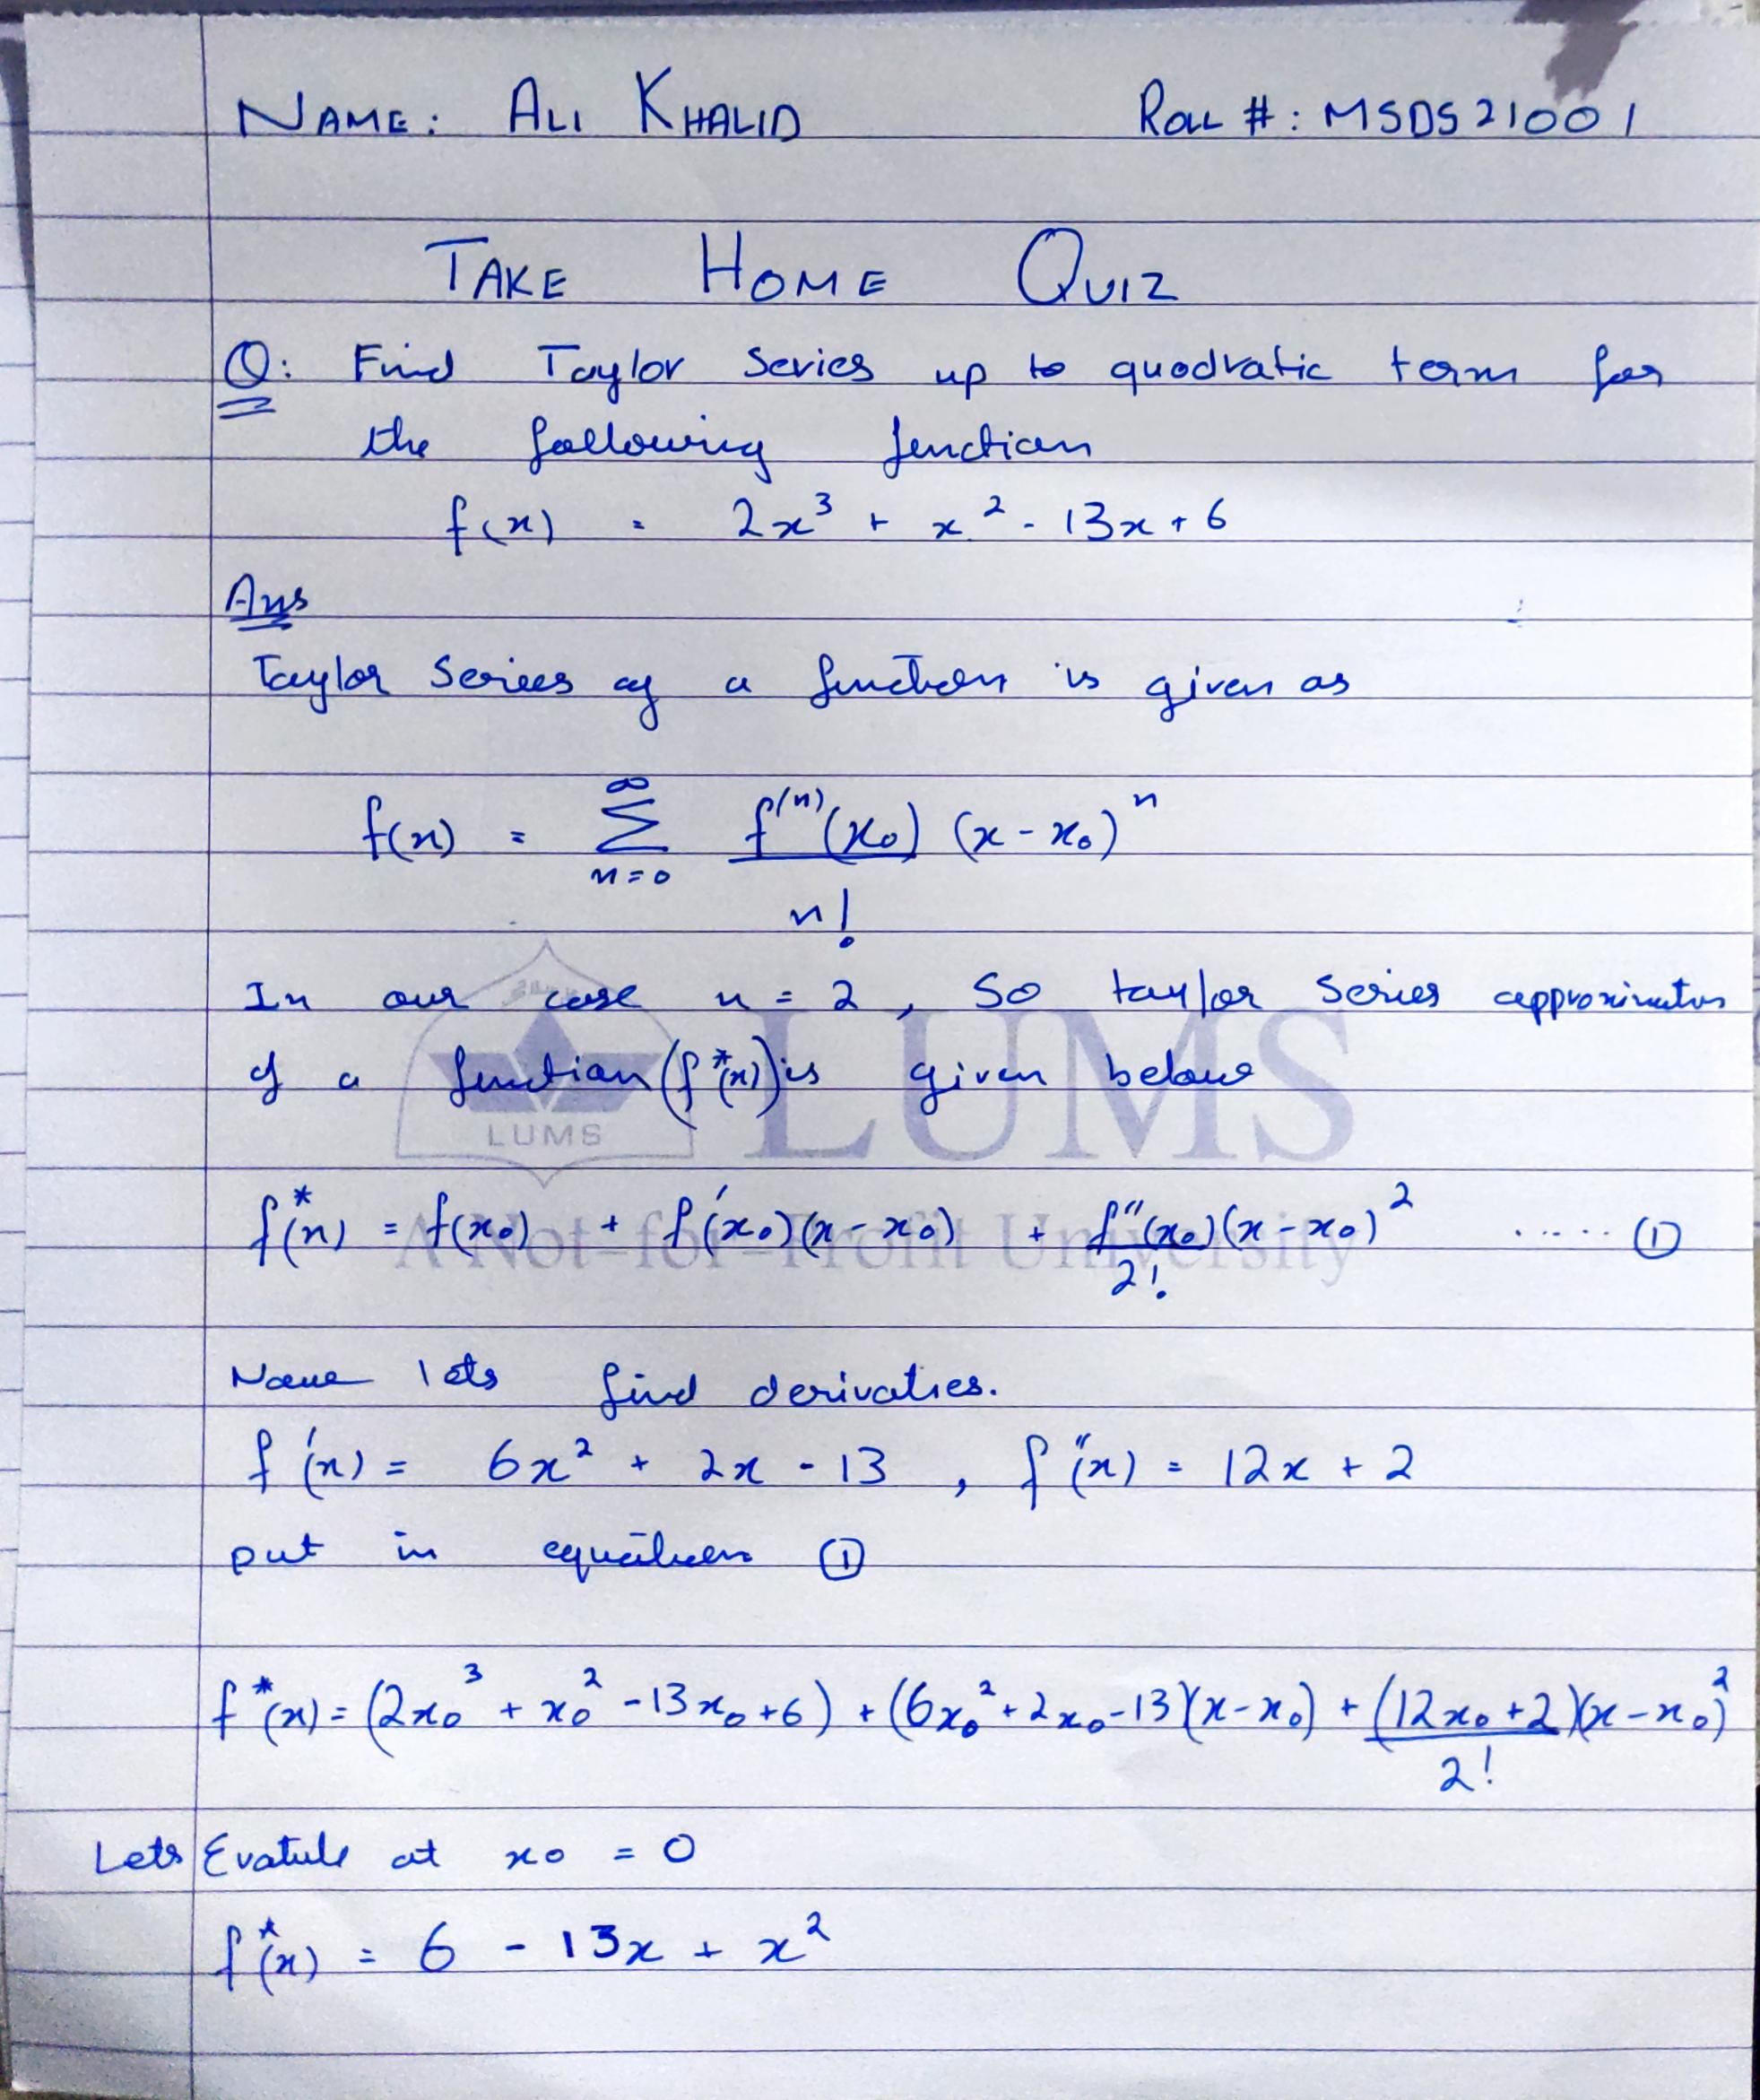 NAME: ALI KHALID Roll #: MSDS21001
TAKE HOME QUIZ
Q: Find Taylor Series up to quadratic term for
the following function
f(x) = 2x³ + x² - 13x + 6
Ans
Taylor Series of a function is given as
f(x) = ∞ Σ n=0 f⁽ⁿ⁾(x₀) (x - x₀)ⁿ
n!
In our case n = 2, So taylor series
of a function (f*(x)) is given below
LUMS
LUMS
A Not-for-Profit University
f*(x) = f(x₀) + f'(x₀)(x - x₀) + f"(x₀)(x - x₀)² ..... ①
2!
Now lets find derivaties.
f'(x) = 6x² + 2x - 13 , f"(x) = 12x + 2
put in equation ①
f*(x) = (2x₀³ + x₀² - 13x₀ + 6) + (6x₀² + 2x₀ - 13)(x - x₀) + (12x₀ + 2)(x - x₀)²
2!
Lets at x₀ = 0
f*(x) = 6 - 13x + x²